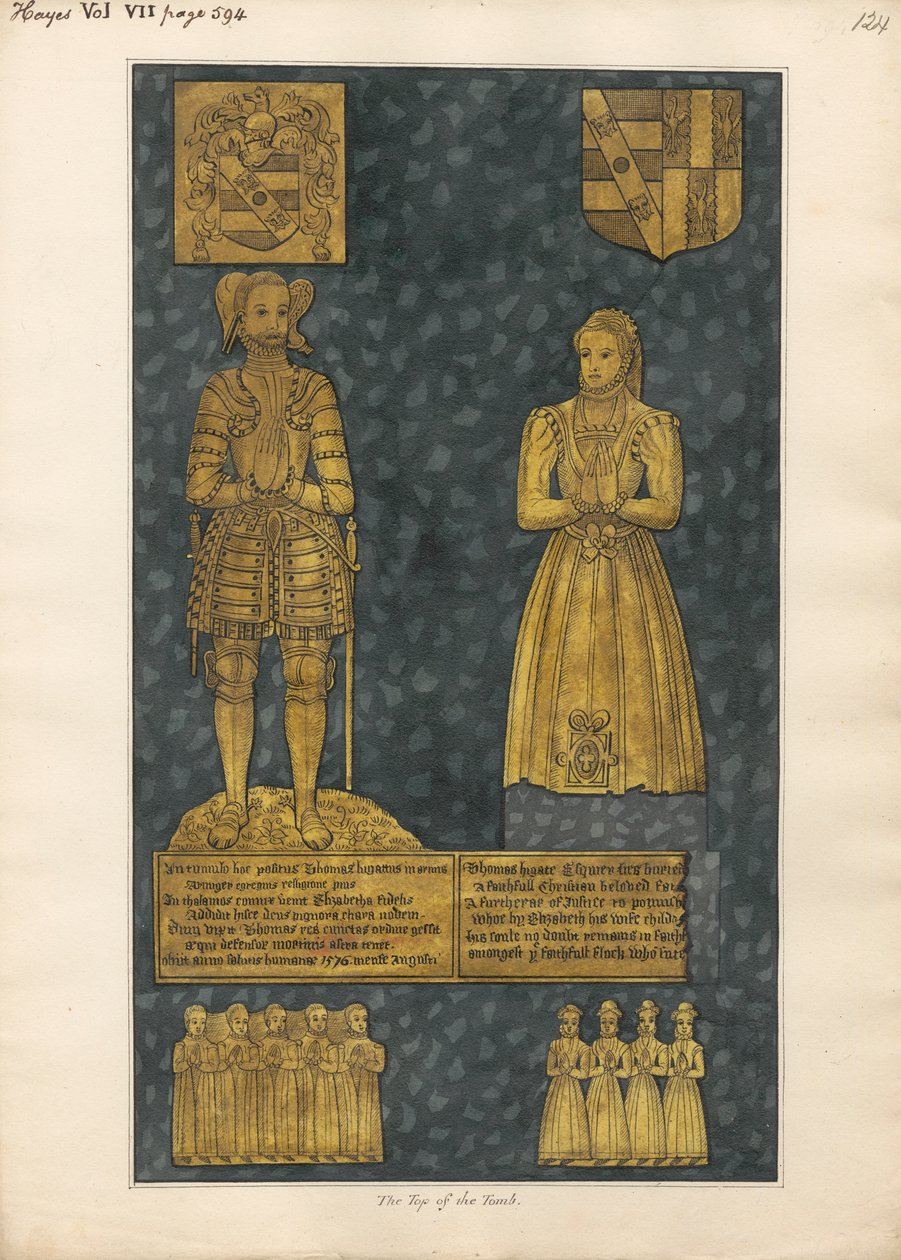 Hayes Vol VII page 594
124
In tumulo hoc positus Thomas higattus in armis
Armiger egregius religione pius
In thalamos coniux venit Elizabetha fidelis
Addidit huic deus pignora chara nouem
Diuu vixit Thomas res cunctas ordine gessit
æqui defensor mortuus astra tenet.
obiit anno salutis humanæ 1576. mense Augusti
Thomas higate Esquier lies buried
A faithfull Christian beloved far
A furtherar of Justice to
whoe by Elizabeth his wife childs
his soule no doubt remains in faith
amongest yͤ faithfull flock who
The Top of the Tomb.